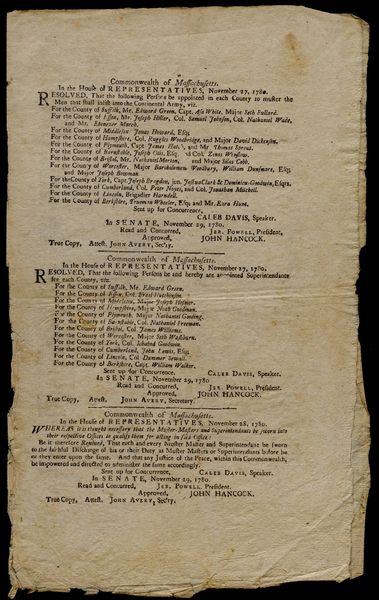 Commonwealth of Massachusetts.
In the House of REPRESENTATIVES, November 27, 1780.
RESOLVED, That the following Persons be appointed in each County to muster the
Men that shall inlist into the Continental Army, viz.
For the County of Suffolk, Mr. Edward Green, Capt. Asa White, Maj. Seth Bullard.
For the County of Essex, Mr. Joseph Hiller, Col. Samuel Johnson, Col. Nathaniel Wade,
and Mr. Ebenezer March.
For the County of Middlesex James Howard, Esq;
For the County of Hampshire, Col. Ruggles Woodbridge, and Major David Dickenson.
For the County of Plymouth, Capt. James and Mr. Thomas Sproat.
For the County of Barnstable, Joseph Otis, Esq; and Col. Zenas Winslow.
For the County of Bristol, Mr. Nathaniel Morton, and Major Silas Cobb.
For the County of Worcester, Major Bartholomew Woodbury, William Dunsmore, Esq;
and Major Joseph Bowman.
For the County of York, Capt. Joseph Bragdon, jun. Joshua Clark & Dominicus Goodwin, Esq'rs.
For the County of Cumberland, Col. Peter Noyes, and Col. Jonathan Mitchell.
For the County of Lincoln, Brigadier
For the County of Berkshire, Truman Wheeler, Esq; and Mr. Ezra Hunt.
Sent up for Concurrence,
CALEB DAVIS, Speaker.
In SENATE, November 29, 1780.
Read and Concurred, JER. POWELL, President,
Approved, JOHN HANCOCK.
True Copy, Attest. JOHN AVERY, Sec'ry.
Commonwealth of Massachusetts.
In the House of REPRESENTATIVES, November 27, 1780.
RESOLVED, That the following Persons be and hereby are appointed Superintendants
for each County, viz.
For the County of Suffolk, Mr. Edward Green.
For the County of Essex, Col. Israel Hutchinson.
For the County of Middlesex, Major Joseph Hosmer.
For the County of Hampshire, Major Noah Goodman.
For the County of Plymouth, Major Nathaniel Goodwin.
For the County of Barnstable, Col. Nathaniel Freeman.
For the County of Bristol, Col. James Williams.
For the County of Worcester, Major Seth Washburn.
For the County of York, Col. Ichabod Goodwin.
For the County of Cumberland, John Lewis, Esq;
For the County of Lincoln, Col. Dummer Sewall.
For the County of Berkshire, Capt. William Walker.
Sent up for Concurrence, CALEB DAVIS, Speaker.
In SENATE, November 29, 1780.
Read and Concurred, JER. POWELL, President.
Approved, JOHN HANCOCK.
True Copy, Attest. JOHN AVERY, Secretary.
Commonwealth of Massachusetts.
In the House of REPRESENTATIVES, November 28, 1780.
WHEREAS it is thought necessary that the Muster-Masters and Superintendants be sworn into
their respective Offices to qualify them for acting in said Offices:
Be it therefore Resolved, That each and every Muster Master and Superintendant be sworn
to the faithful Discharge of his or their Duty as Muster Masters or Superintendants before he
or they enter upon the same. And that any Justice of the Peace, within this Commonwealth,
be impowered and directed to administer the same accordingly.
Sent up for Concurrence, CALEB DAVIS, Speaker.
In SENATE, November 29, 1780.
Read and Concurred, JER. POWELL, President.
Approved, JOHN HANCOCK.
True Copy, Attest. JOHN AVERY, Sec'ry.